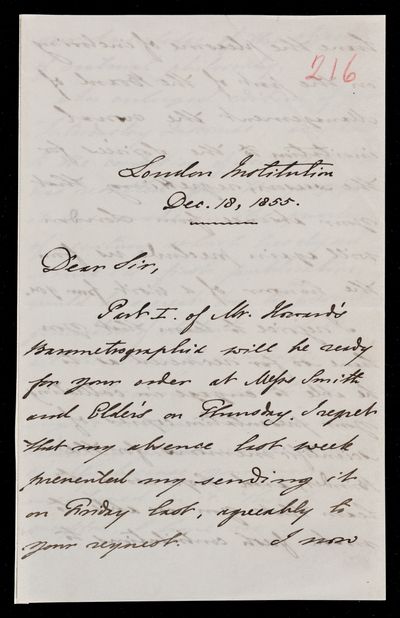 216
London Institution
Dec. 18, 1855.
Dear Sir,
Part I. of Mr. Howard's
Barometrographia will be ready
for your order at Messrs Smith
and Elder's on Thursday. I regret
that my absence last week
prevented my sending it
on Friday last, agreeably to
your request. I now